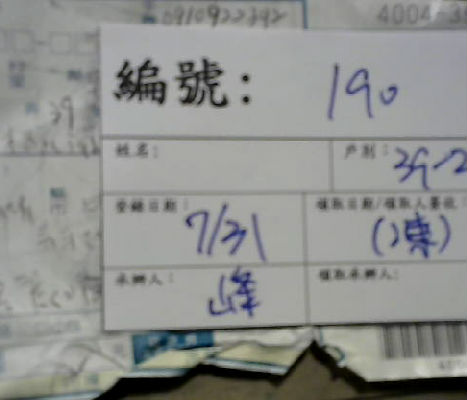 0910922392
4004-3
編號: 190
姓名:
戶別: 39-2
登錄日期: 7/31
領取日期/領取人簽收:
(凍)
承辦人: 峰
領取承辦人:
39